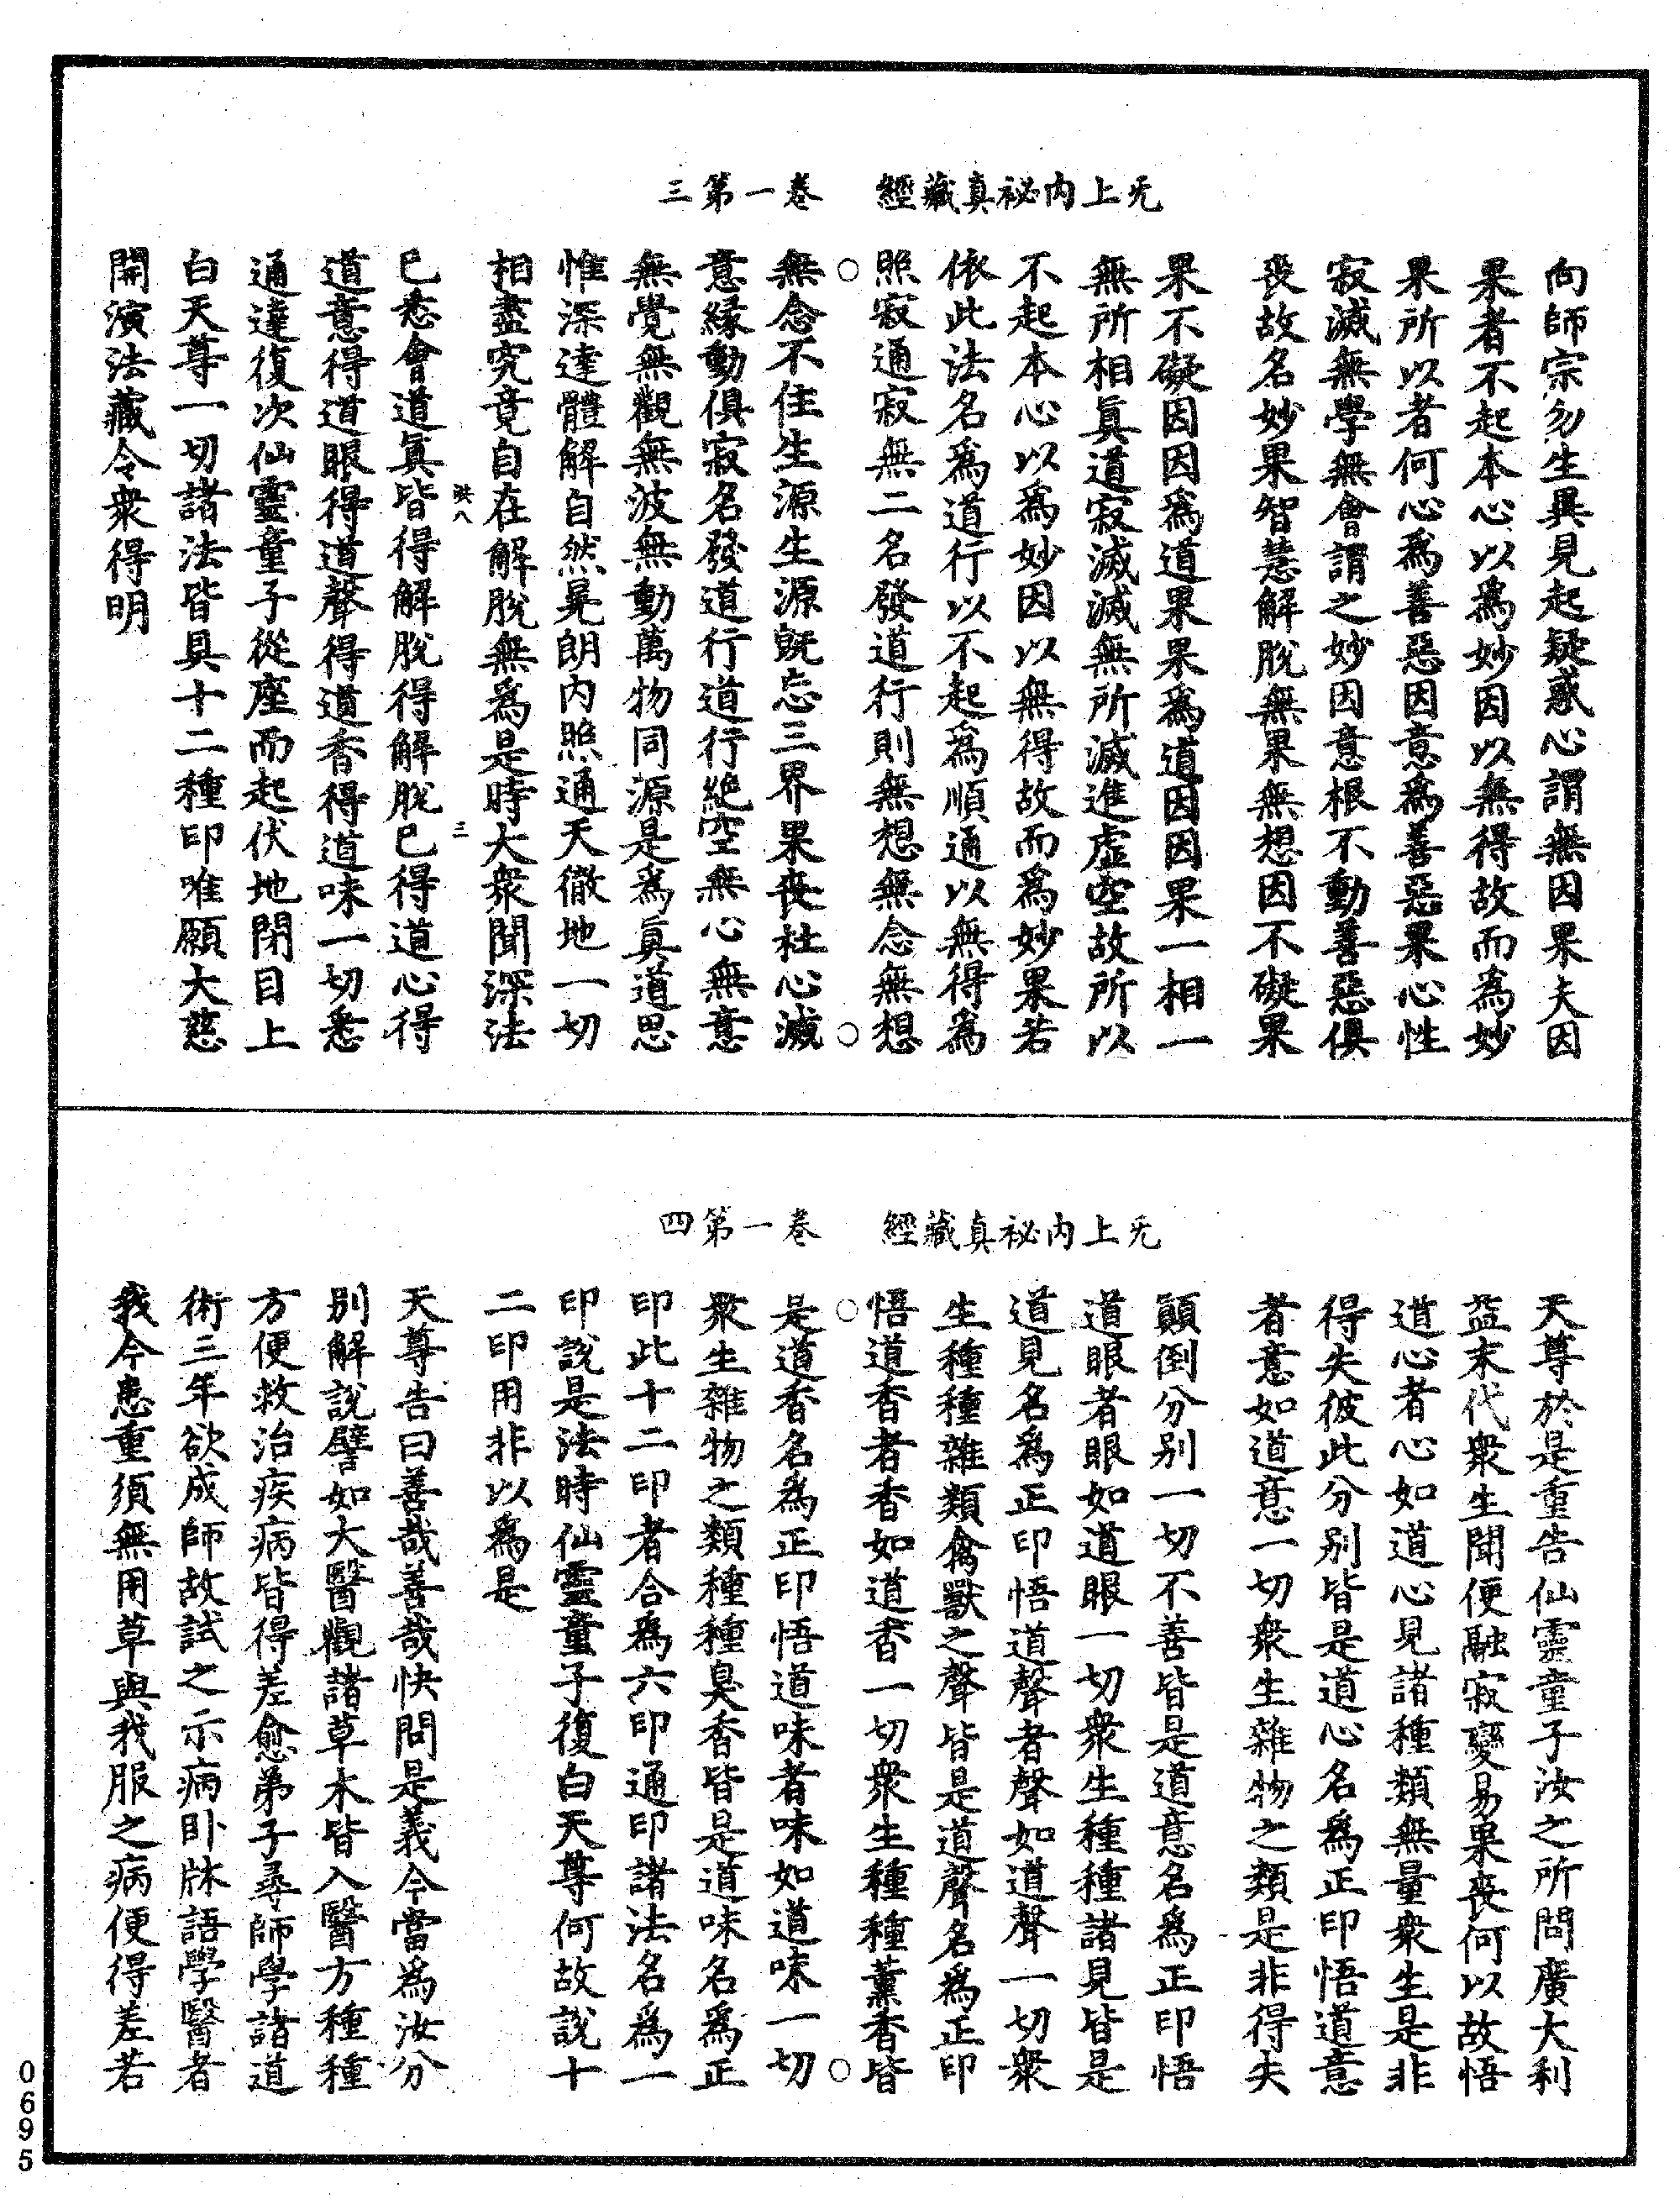 无上內祕真藏經　卷一第三
向師宗勿生異見起疑惑心謂無因果夫因
果者不起本心以為妙因以無得故而為妙
果所以者何心為善惡因意為善惡果心性
寂滅無學無會謂之妙因意根不動善惡俱
喪故名妙果智慧解脫無果無想因不礙果
果不礙因因為道果果為道因因果一相一
無所相真道寂滅滅無所滅進虛空故所以
不起本心以為妙因以無得故而為妙果若
依此法名為道行以不起為順通以無得為
照寂通寂無二名發道行則無想無念無想
○○
無念不住生源生源旣忘三界果喪杜心滅
意緣動俱寂名發道行道行絕空無心無意
無覺無觀無波無動萬物同源是為真道思
惟深達體解自然晃朗內照通天徹地一切
相盡究竟自在解脫無為是時大衆聞深法
洪八　三
已悉會道真皆得解脫得解脫已得道心得
道意得道眼得道聲得道香得道味一切悉
通達復次仙靈童子從座而起伏地閉目上
白天尊一切諸法皆具十二種印唯願大慈
開演法藏令衆得明
无上內祕真藏經　卷一第四
天尊於是重告仙靈童子汝之所問廣大利
益末代衆生聞便融寂變易果喪何以故悟
道心者心如道心見諸種類無量衆生是非
得失彼此分別皆是道心名為正印悟道意
者意如道意一切衆生雜物之類是非得失
顛倒分別一切不善皆是道意名為正印悟
道眼者眼如道眼一切衆生種種諸見皆是
道見名為正印悟道聲者聲如道聲一切衆
生種種雜類禽獸之聲皆是道聲名為正印
悟道香者香如道香一切衆生種種薰香皆
○○
是道香名為正印悟道味者味如道味一切
衆生雜物之類種種臭香皆是道味名為正
印此十二印者合為六印通印諸法名為一
印說是法時仙靈童子復白天尊何故說十
二印用非以為是
天尊告曰善哉善哉快問是義今當為汝分
別解說譬如大醫觀諸草木皆入醫方種種
方便救治疾病皆得差愈弟子尋師學諸道
術三年欲成師故試之示病卧牀語學醫者
我今患重須無用草與我服之病便得差若
0695